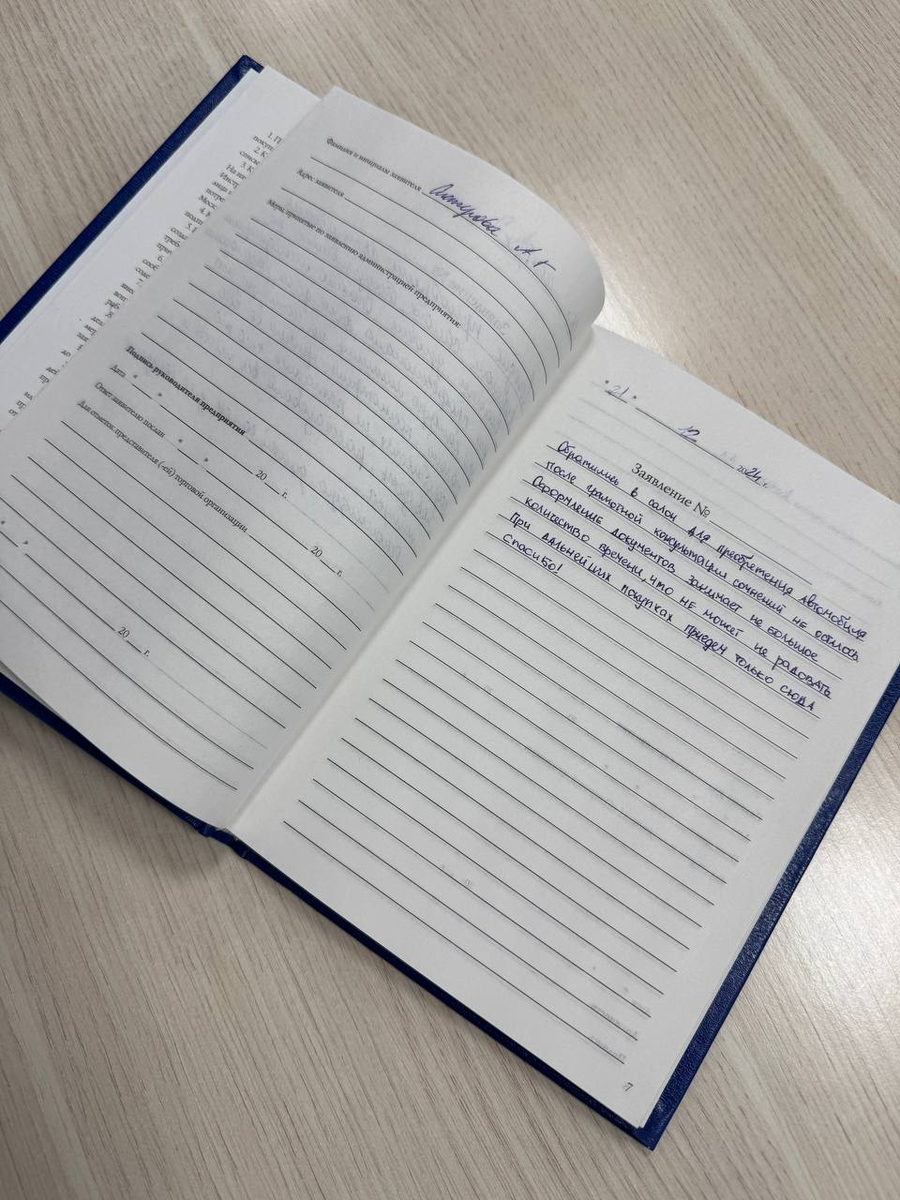 1. П
покуп
2. К
3. К
На
Инст
потре
Моск
4.
5. I
требо
6.
Фамилия и инициалы заявителя
Адрес заявителя
А. Г
Меры, принятые по заявлению администрацией предприятия:
Подпись руководителя предприятия
Дата " " 20 г.
Ответ заявителю послан " " 20 г.
Для отметок представителя (-ей) торговой организации
" " 20 г.
"21" 12 2024 г.
Заявление №
Обратились в салон для преобретения автомобиля
после грамотной консультации сочнений не осталось
Оформление документов занимает не большое
количество времени, что не может не радовать
При дальнейших покупках приедем только сюда
Спасибо!
7